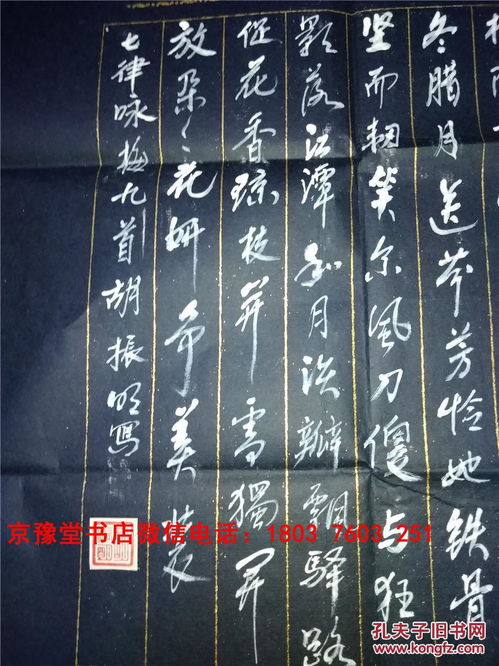 冬腊月送芬芳怜她铁骨
坚而韧笑尔风刀傻与狂
影落江潭月淡瓣飘驿路
花香琼枝雪獨開
放朵〻花妍争美
七律咏梅九首胡振明寫
京豫堂书店微信电话：1803 7603 251
孔夫子旧书网
www.kongfz.com